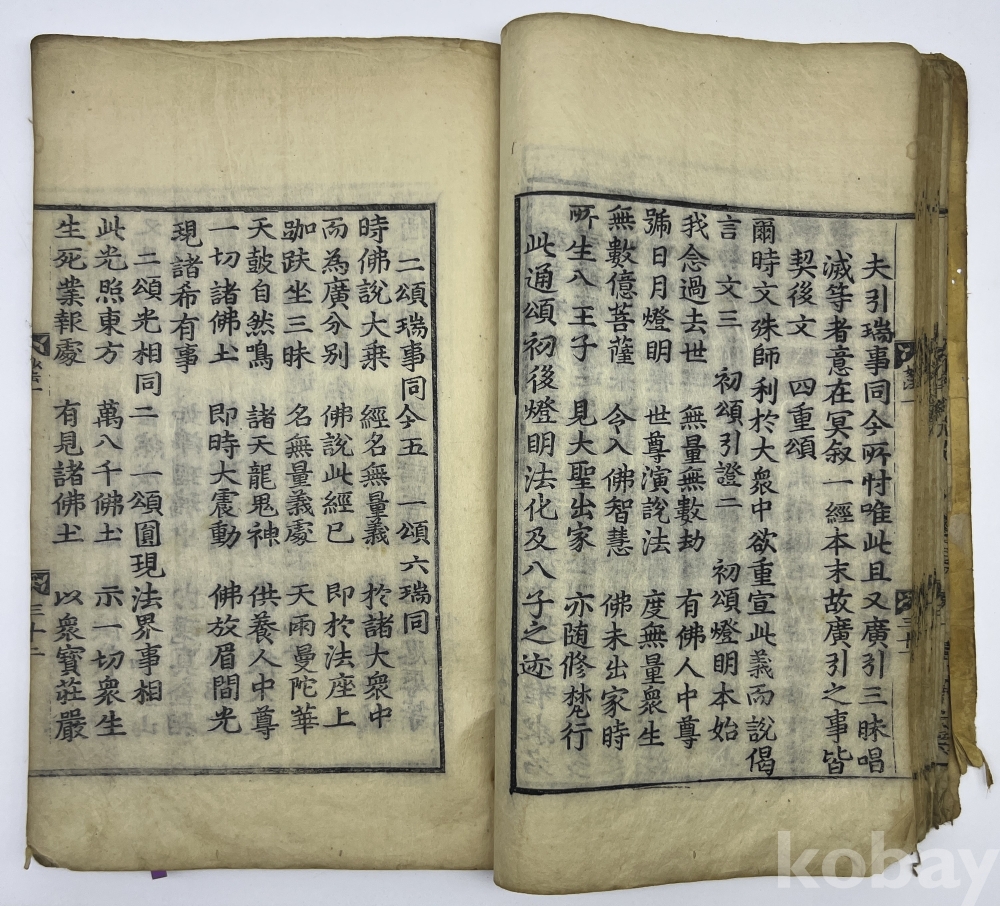 夫引瑞事同今所忖唯此且又廣引三昧唱
滅等者意在冥叙一經本末故廣引之事皆
契後文 四重頌
爾時文殊師利於大衆中欲重宣此義而說偈
言 文三 初頌引證二 初頌燈明本始
我念過去世 無量無數劫 有佛人中尊
號日月燈明 世尊演說法 度無量衆生
無數億菩薩 令入佛智慧 佛未出家時
所生八王子 見大聖出家 亦随修梵行
此通頌初後燈明法化及八子之迹
二頌瑞事同今五 一頌六瑞同
時佛說大乘 經名無量義 於諸大衆中
而為廣分別 佛說此經已 即於法座上
跏趺坐三昧 名無量義處 天雨曼陀華
天鼓自然鳴 諸天龍鬼神 供養人中尊
一切諸佛土 即時大震動 佛放眉間光
現諸希有事
又二頌光相同二 一頌圓現法界事相
此光照東方 萬八千佛土 示一切衆生
生死業報處 有見諸佛土 以衆寳莊嚴
三十二
kobay